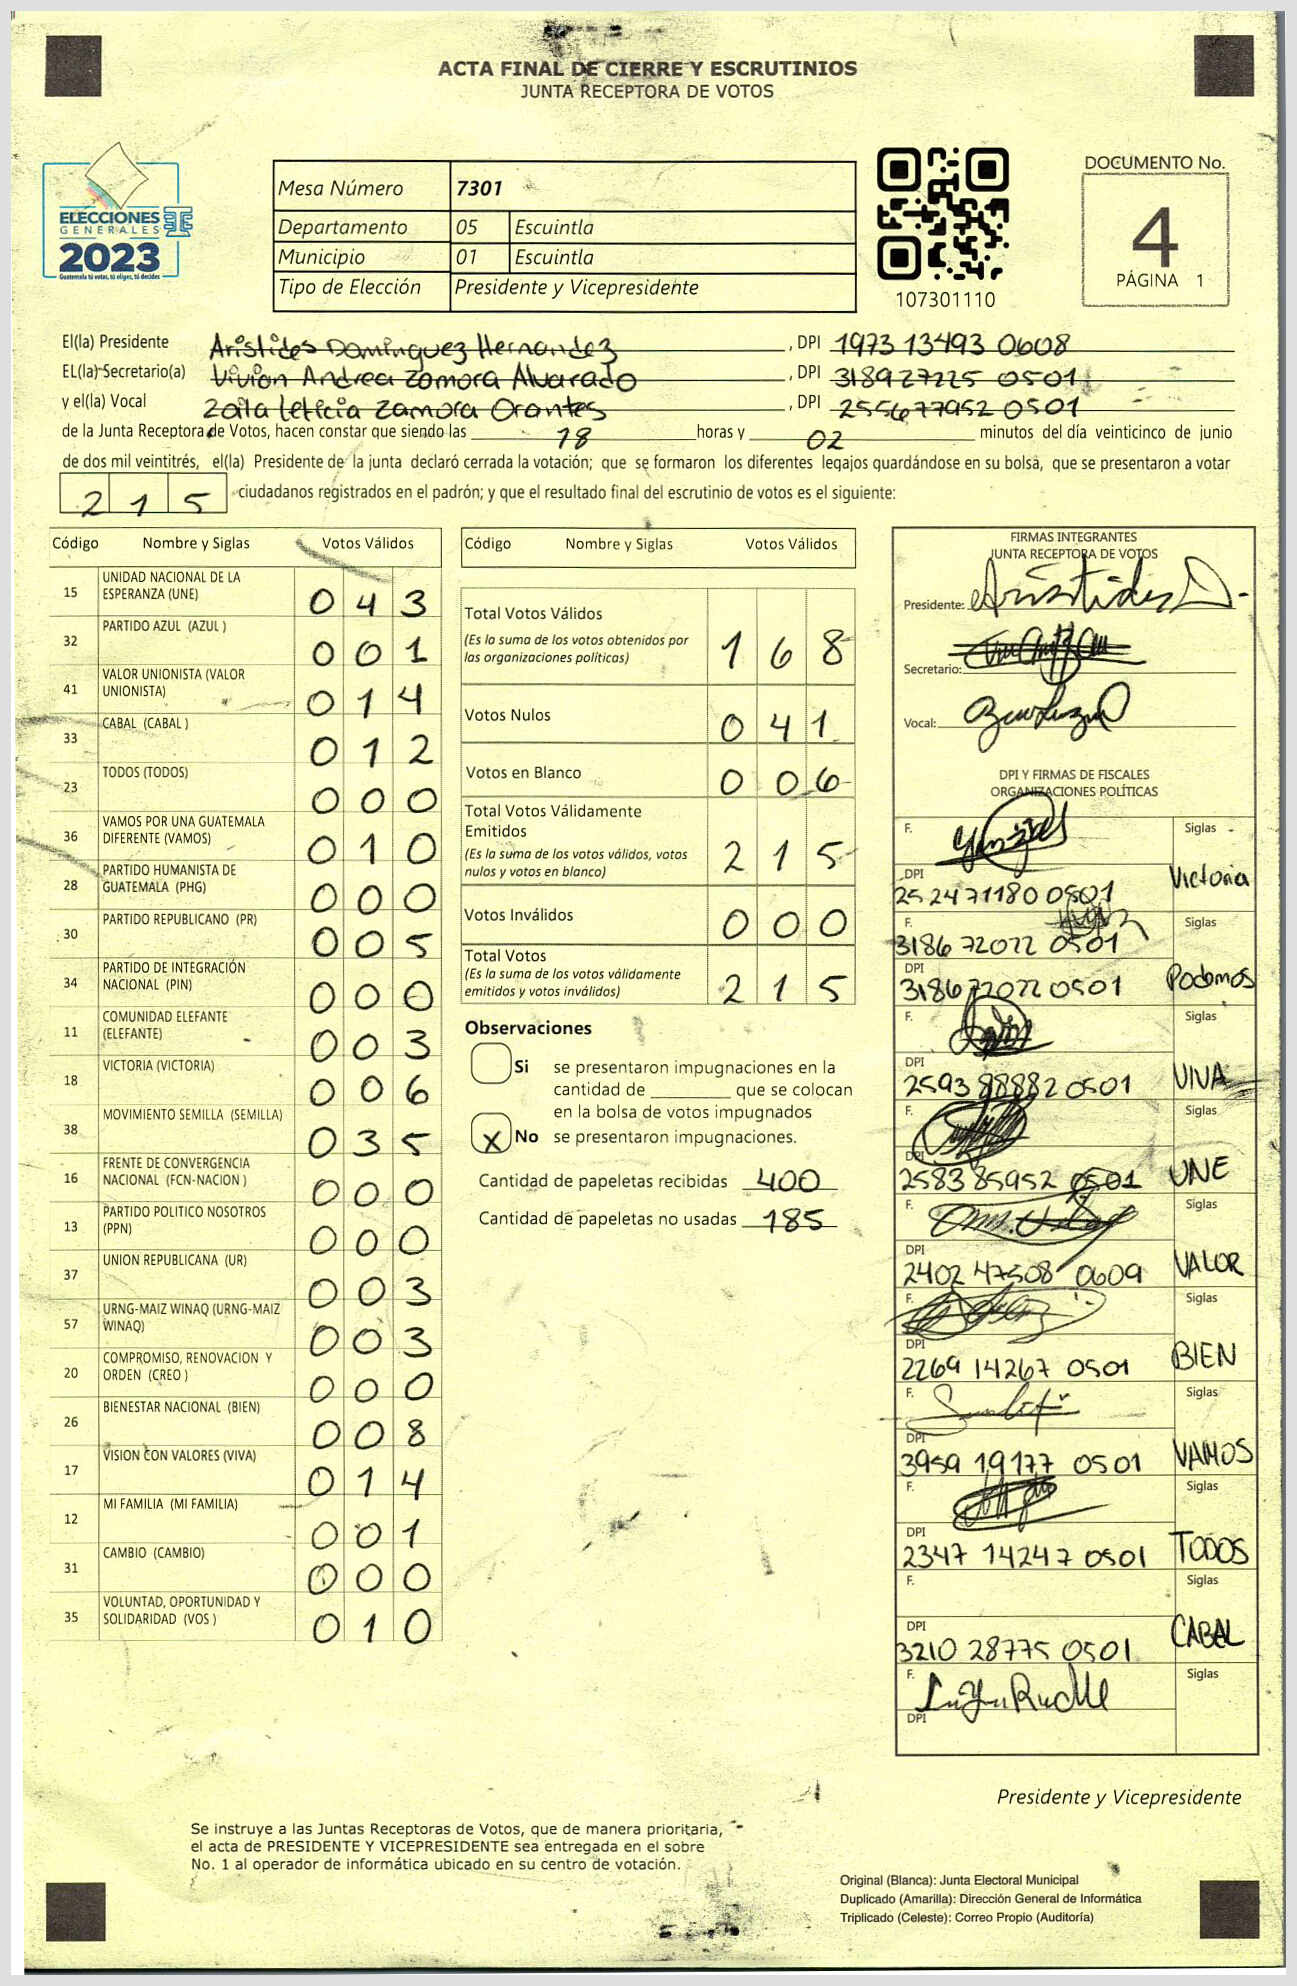 ACTA FINAL DE CIERRE Y ESCRUTINIOS
JUNTA RECEPTORA DE VOTOS
ELECCIONES
GENERALES
2023
Guatemala tú votas, tú eliges, tú decides
Mesa Número 7301
Departamento 05 Escuintla
Municipio 01 Escuintla
Tipo de Elección Presidente y Vicepresidente
107301110
DOCUMENTO No.
4
PÁGINA 1
El(la) Presidente Aristides Dominguez Hernandez, DPI 1973 13493 0608
EL(la) Secretario(a) Vivian Andrea Zamora Alvarado, DPI 318927225 0501
y el(la) Vocal Zoila Leticia Zamora Orantes, DPI 255677952 0501
de la Junta Receptora de Votos, hacen constar que siendo las 18 horas y 02 minutos del día veinticinco de junio
de dos mil veintitrés, el(la) Presidente de la junta declaró cerrada la votación; que se formaron los diferentes legajos guardándose en su bolsa, que se presentaron a votar
215 ciudadanos registrados en el padrón; y que el resultado final del escrutinio de votos es el siguiente:
Código Nombre y Siglas Votos Válidos
15 UNIDAD NACIONAL DE LA ESPERANZA (UNE) 043
32 PARTIDO AZUL (AZUL ) 001
41 VALOR UNIONISTA (VALOR UNIONISTA) 014
33 CABAL (CABAL ) 012
23 TODOS (TODOS) 000
36 VAMOS POR UNA GUATEMALA DIFERENTE (VAMOS) 010
28 PARTIDO HUMANISTA DE GUATEMALA (PHG) 000
30 PARTIDO REPUBLICANO (PR) 005
34 PARTIDO DE INTEGRACIÓN NACIONAL (PIN) 000
11 COMUNIDAD ELEFANTE (ELEFANTE) 003
18 VICTORIA (VICTORIA) 006
38 MOVIMIENTO SEMILLA (SEMILLA) 035
16 FRENTE DE CONVERGENCIA NACIONAL (FCN-NACION ) 000
13 PARTIDO POLITICO NOSOTROS (PPN) 000
37 UNION REPUBLICANA (UR) 003
57 URNG-MAIZ WINAQ (URNG-MAIZ WINAQ) 003
20 COMPROMISO, RENOVACION Y ORDEN (CREO ) 000
26 BIENESTAR NACIONAL (BIEN) 008
17 VISION CON VALORES (VIVA) 014
12 MI FAMILIA (MI FAMILIA) 001
31 CAMBIO (CAMBIO) 000
35 VOLUNTAD, OPORTUNIDAD Y SOLIDARIDAD (VOS ) 010
Código Nombre y Siglas Votos Válidos
Total Votos Válidos 168
(Es la suma de los votos obtenidos por
las organizaciones políticas)
Votos Nulos 041
Votos en Blanco 006
Total Votos Válidamente
Emitidos 215
(Es la suma de los votos válidos, votos
nulos y votos en blanco)
Votos Inválidos 000
Total Votos 215
(Es la suma de los votos válidamente
emitidos y votos inválidos)
Observaciones
Si se presentaron impugnaciones en la
cantidad de ________ que se colocan
en la bolsa de votos impugnados
X No se presentaron impugnaciones.
Cantidad de papeletas recibidas 400
Cantidad de papeletas no usadas 185
FIRMAS INTEGRANTES
JUNTA RECEPTORA DE VOTOS
Presidente: Aristides D.
Secretario:
Vocal:
DPI Y FIRMAS DE FISCALES
ORGANIZACIONES POLÍTICAS
F. Siglas
DPI 25 2471180 0501 Victoria
F. 3186 72022 0501 Siglas
DPI 3186 72022 0501 Podemos
F. Siglas
DPI 2593 88882 0501 VIVA
F. Siglas
DPI 2583 85952 0501 UNE
F. Siglas
DPI 2402 47508 0609 VALOR
F. Siglas
DPI 2269 14267 0501 BIEN
F. Siglas
DPI 3959 19177 0501 VAMOS
F. Siglas
DPI 2347 14247 0501 TODOS
F. Siglas
DPI 3210 28775 0501 CABAL
F. Siglas
DPI
Presidente y Vicepresidente
Se instruye a las Juntas Receptoras de Votos, que de manera prioritaria,
el acta de PRESIDENTE Y VICEPRESIDENTE sea entregada en el sobre
No. 1 al operador de informática ubicado en su centro de votación.
Original (Blanca): Junta Electoral Municipal
Duplicado (Amarilla): Dirección General de Informática
Triplicado (Celeste): Correo Propio (Auditoría)